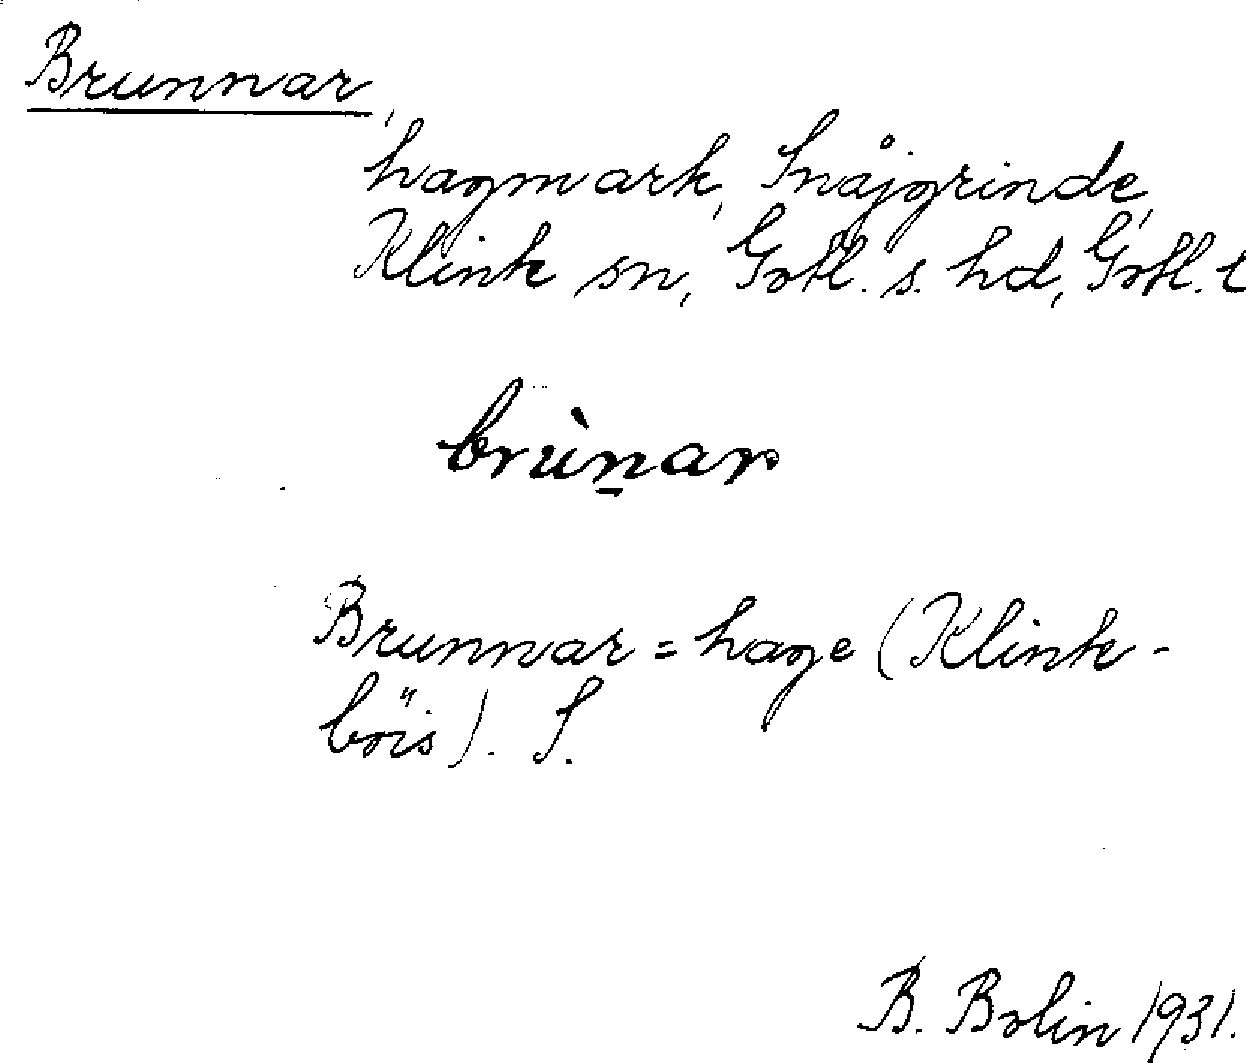 Brunnar,
hagmark, Snåjgrinde,
Klink sn, Gotl. s. hd, Gotl. l
brùn̠ar
Brunnar = hage (Klink-
böis). S.
B. Bolin 1931.